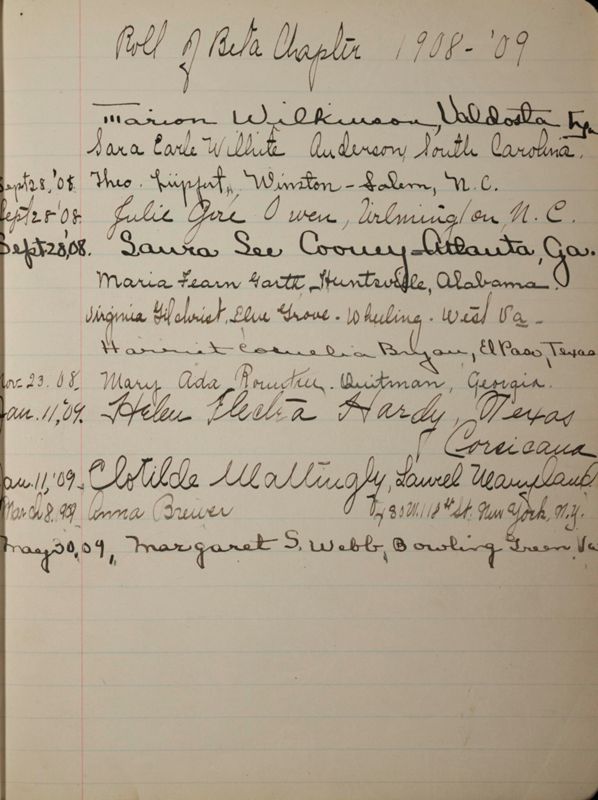 Roll of Beta Chapter 1908-'09
Marion Wilkinson, Valdosta
Sara Earle Wilhite Anderson, South Carolina.
Sept 28, '08. Theo. Winston-Salem, N.C.
Sept 28 '08. Julie Owen, Wilmington, N.C.
Sept 28, '08. Laura Lee Cooney-Atlanta, Ga.
Maria Fearn Garth, Huntsville, Alabama.
Virginia Gilchrist, Elm Grove - Wheeling - West Va -
Harriet Cornelia Bryan, El Paso, Texas
Nov. 23. '08. Mary Ada Rountree. Quitman, Georgia.
Jan. 11, '09. Helen Electra Hardy, Texas
Corsicana
Jan. 11, '09. Clotilde Mattingly, Laurel Maryland
March 8, Anna Brewer W. 118th St. New York, N.Y.
May 30, 09, Margaret S. Webb, Bowling Green, Va